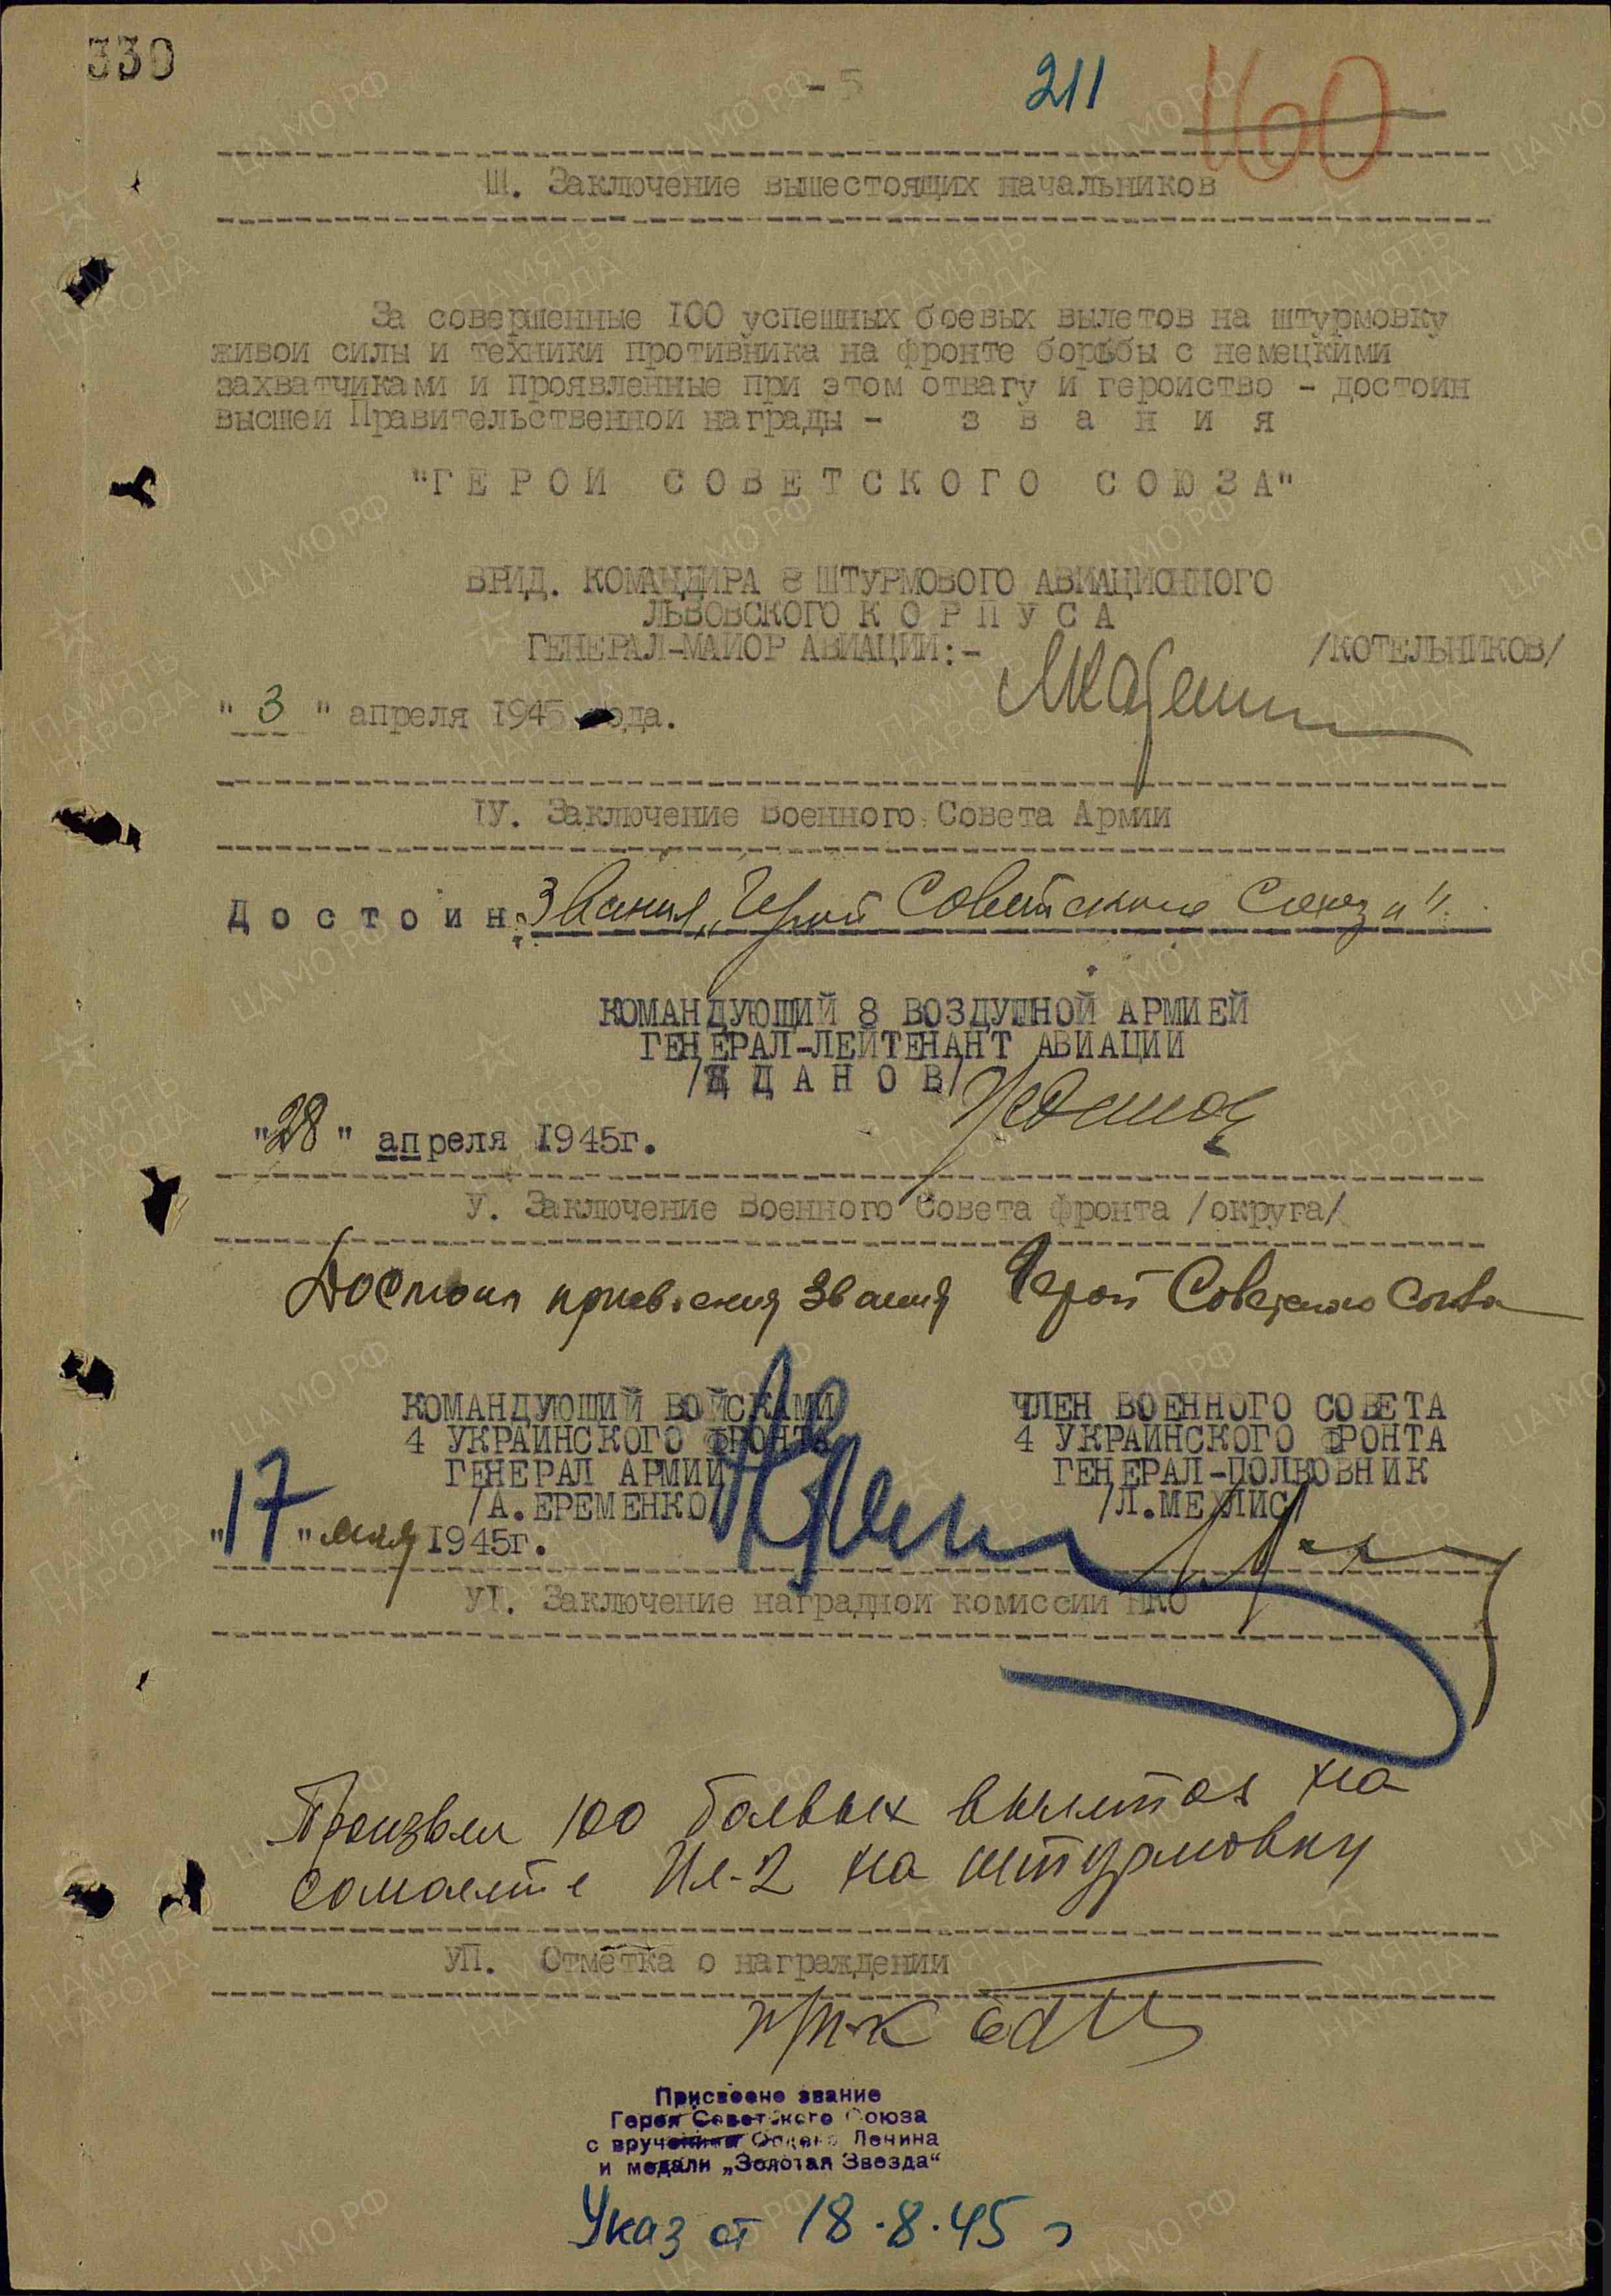 330
- 5
211
160
III. Заключение вышестоящих начальников
За совершенные 100 успешных боевых вылетов на штурмовку
живои силы и техники противника на фронте борьбы с немецкими
захватчиками и проявленные при этом отвагу и героиство - достоин
высшеи Правительственнои награды - з в а н и я
"ГЕРОИ СОВЕТСКОГО СОЮЗА"
ВРИД. КОМАНДИРА 8 ШТУРМОВОГО АВИАЦИОННОГО
ЛЬВОВСКОГО К О Р П У С А
ГЕНЕРАЛ-МАИОР АВИАЦИИ:- /КОТЕЛЬНИКОВ/
" 3 " апреля 1945 года.
IУ. Заключение Военного Совета Армии
Д о с т о и н звания „Герой Советского Союза".
КОМАНДУЮЩИЙ 8 ВОЗДУШНОЙ АРМИЕЙ
ГЕНЕРАЛ-ЛЕЙТЕНАНТ АВИАЦИИ
/Ж Д А Н О В/
"28" апреля 1945г.
У. Заключение Военного Совета фронта /округа/
Достоин присвоения звания Герой Советского Союза
КОМАНДУЮЩИЙ ВОЙСКАМИ ЧЛЕН ВОЕННОГО СОВЕТА
4 УКРАИНСКОГО ФРОНТА 4 УКРАИНСКОГО ФРОНТА
ГЕНЕРАЛ АРМИИ ГЕНЕРАЛ-ПОЛКОВНИК
/А.ЕРЕМЕНКО/ /Л.МЕХЛИС/
"17" мая 1945г.
УI. Заключение наградной комиссии НКО
Произвел 100 боевых вылетов на
самолете Ил-2 на штурмовку
УП. Отметка о награждении
Присвоено звание
Героя Советского Союза
с вручением Ордена Ленина
и медали „Золотая Звезда"
Указ от 18.8.45 г